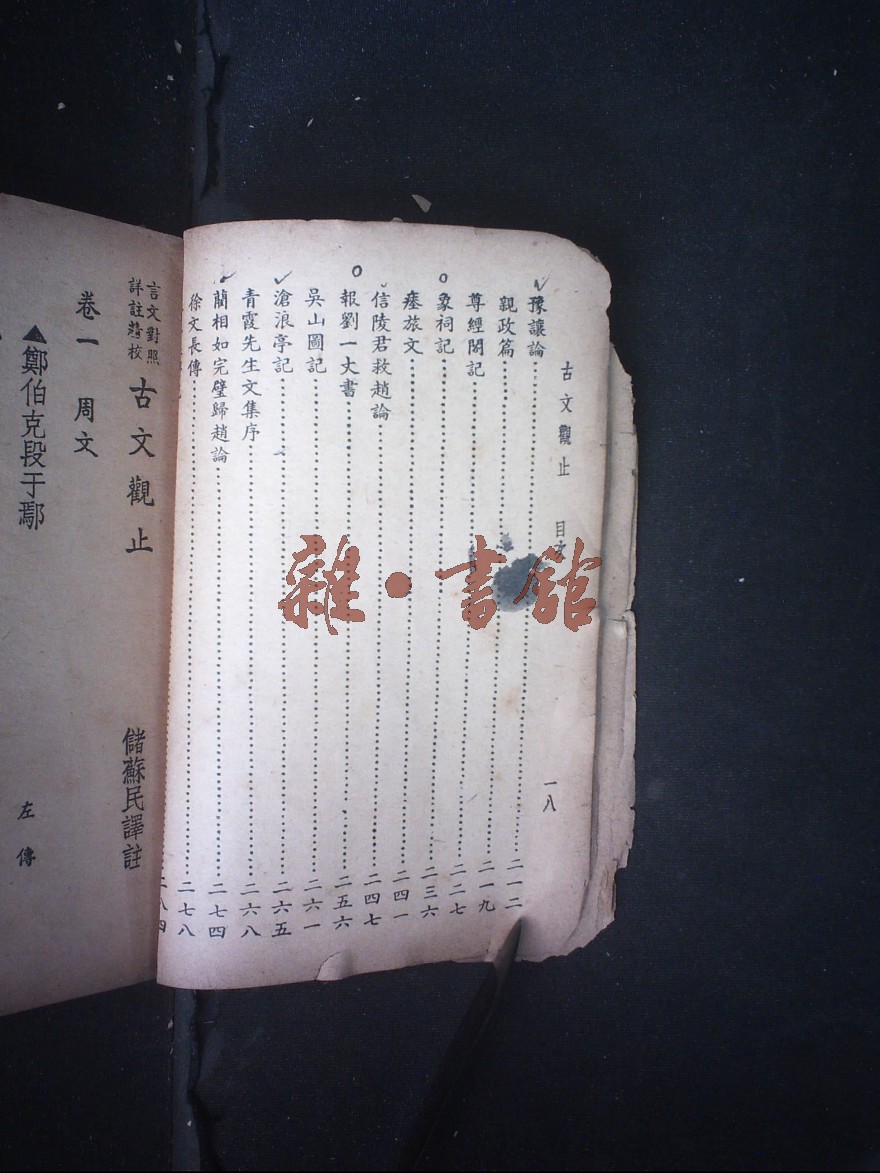 古文觀止 目次 一八
豫讓論 二一二
親政篇 二一九
尊經閣記 二二七
象祠記 二三六
瘞旅文 二四一
信陵君救趙論 二四七
報劉一丈書 二五六
吳山圖記 二六一
滄浪亭記 二六五
青霞先生文集序 二六八
藺相如完璧歸趙論 二七四
徐文長傳 二七八
二八四
言文對照
詳註精校
古文觀止 儲蘇民譯註
卷一 周文
▲鄭伯克段于鄢 左傳
雜·書館